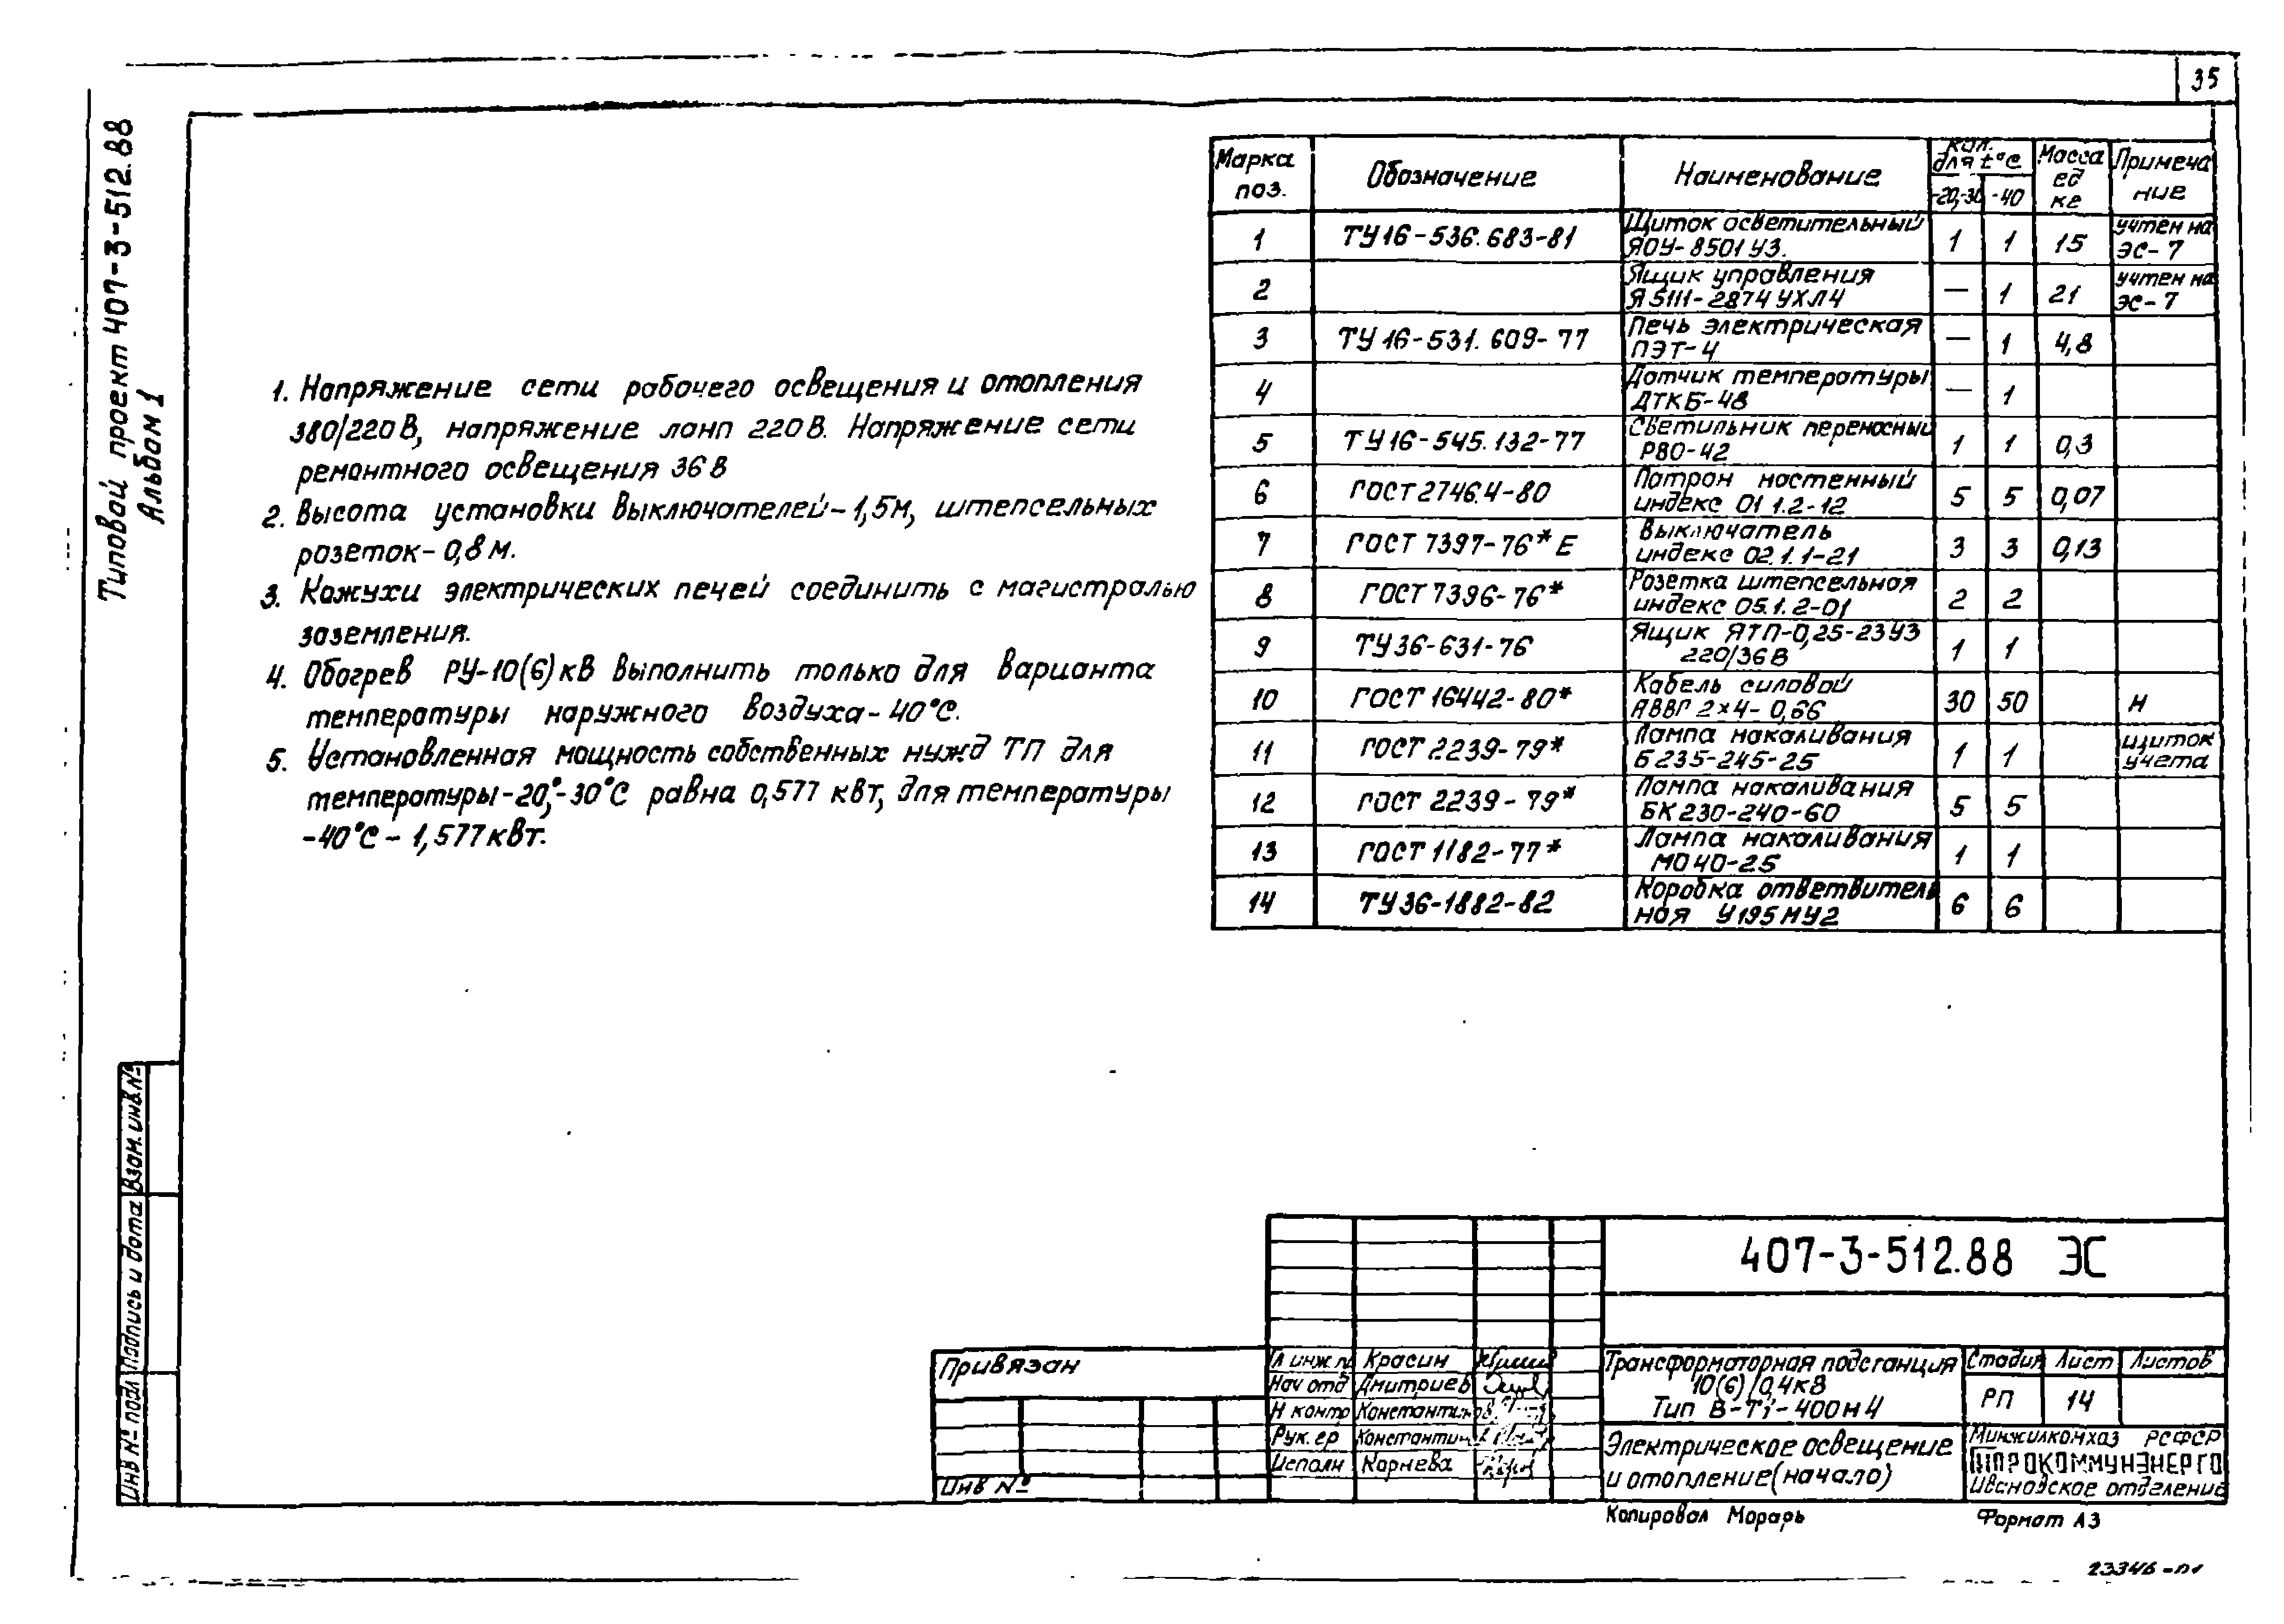 35
Типовой проект 407-3-512.88
Альбом 1
1. Напряжение сети рабочего освещения и отопления
380/220В, напряжение ламп 220В. Напряжение сети
ремонтного освещения 36В
2. Высота установки выключателей-1,5м, штепсельных
розеток-0,8м.
3. Кожухи электрических печей соединить с магистралью
заземления.
4. Обогрев РУ-10(6)кВ выполнить только для варианта
температуры наружного воздуха-40°С.
5. Установленная мощность собственных нужд ТП для
температуры-20,°-30°С равна 0,577 кВт, для температуры
-40°С - 1,577кВт.
Марка поз. Обозначение Наименование Кол. для t°С -20,-30 -40 Масса ед кг Примечание
1 ТУ16-536.683-81 Щиток осветительный ЯОУ-8501У3. 1 1 15 учтен на ЭС-7
2 Ящик управления Я5111-2874УХЛ4 — 1 21 учтен на ЭС-7
3 ТУ16-531.609-77 Печь электрическая ПЭТ-4 — 1 4,8
4 Датчик температуры ДТКБ-48 — 1
5 ТУ16-545.132-77 Светильник переносный РВО-42 1 1 0,3
6 ГОСТ2746.4-80 Патрон настенный индекс 01 1.2-12 5 5 0,07
7 ГОСТ 7397-76*Е Выключатель индекс 02.1.1-21 3 3 0,13
8 ГОСТ 7396-76* Розетка штепсельная индекс 05.1.2-01 2 2
9 ТУ36-631-76 Ящик ЯТП-0,25-23У3 220/36В 1 1
10 ГОСТ 16442-80* Кабель силовой АВВГ 2×4-0,66 30 50 м
11 ГОСТ 2239-79* Лампа накаливания Б235-245-25 1 1 щиток учета
12 ГОСТ 2239-79* Лампа накаливания БК230-240-60 5 5
13 ГОСТ 1182-77* Лампа накаливания МО40-25 1 1
14 ТУ36-1882-82 Коробка ответвительная У195МУ2 6 6
Взам. инв.№
Подпись и дата
Инв № подл
407-3-512.88 ЭС
Привязан
Инв №
Гл инж пр Красин
Нач отд Дмитриев
Н контр Константинов
Рук. гр Константин
Исполн Корнева
Трансформаторная подстанция
10(6)/0,4кВ
Тип В-Т1-400м4
Стадия Лист Листов
РП 14
Электрическое освещение
и отопление(начало)
Минжилкомхоз РСФСР
ГИПРОКОММУНЭНЕРГО
Ивановское отделение
Копировал Морарь
Формат А3
23346-01